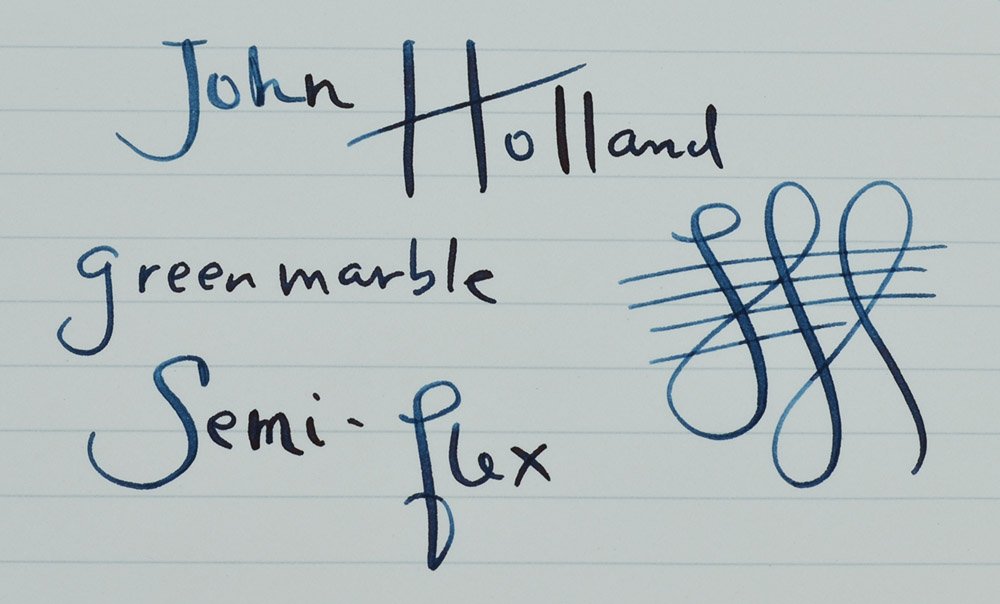 John Holland
green marble
Semi-flex